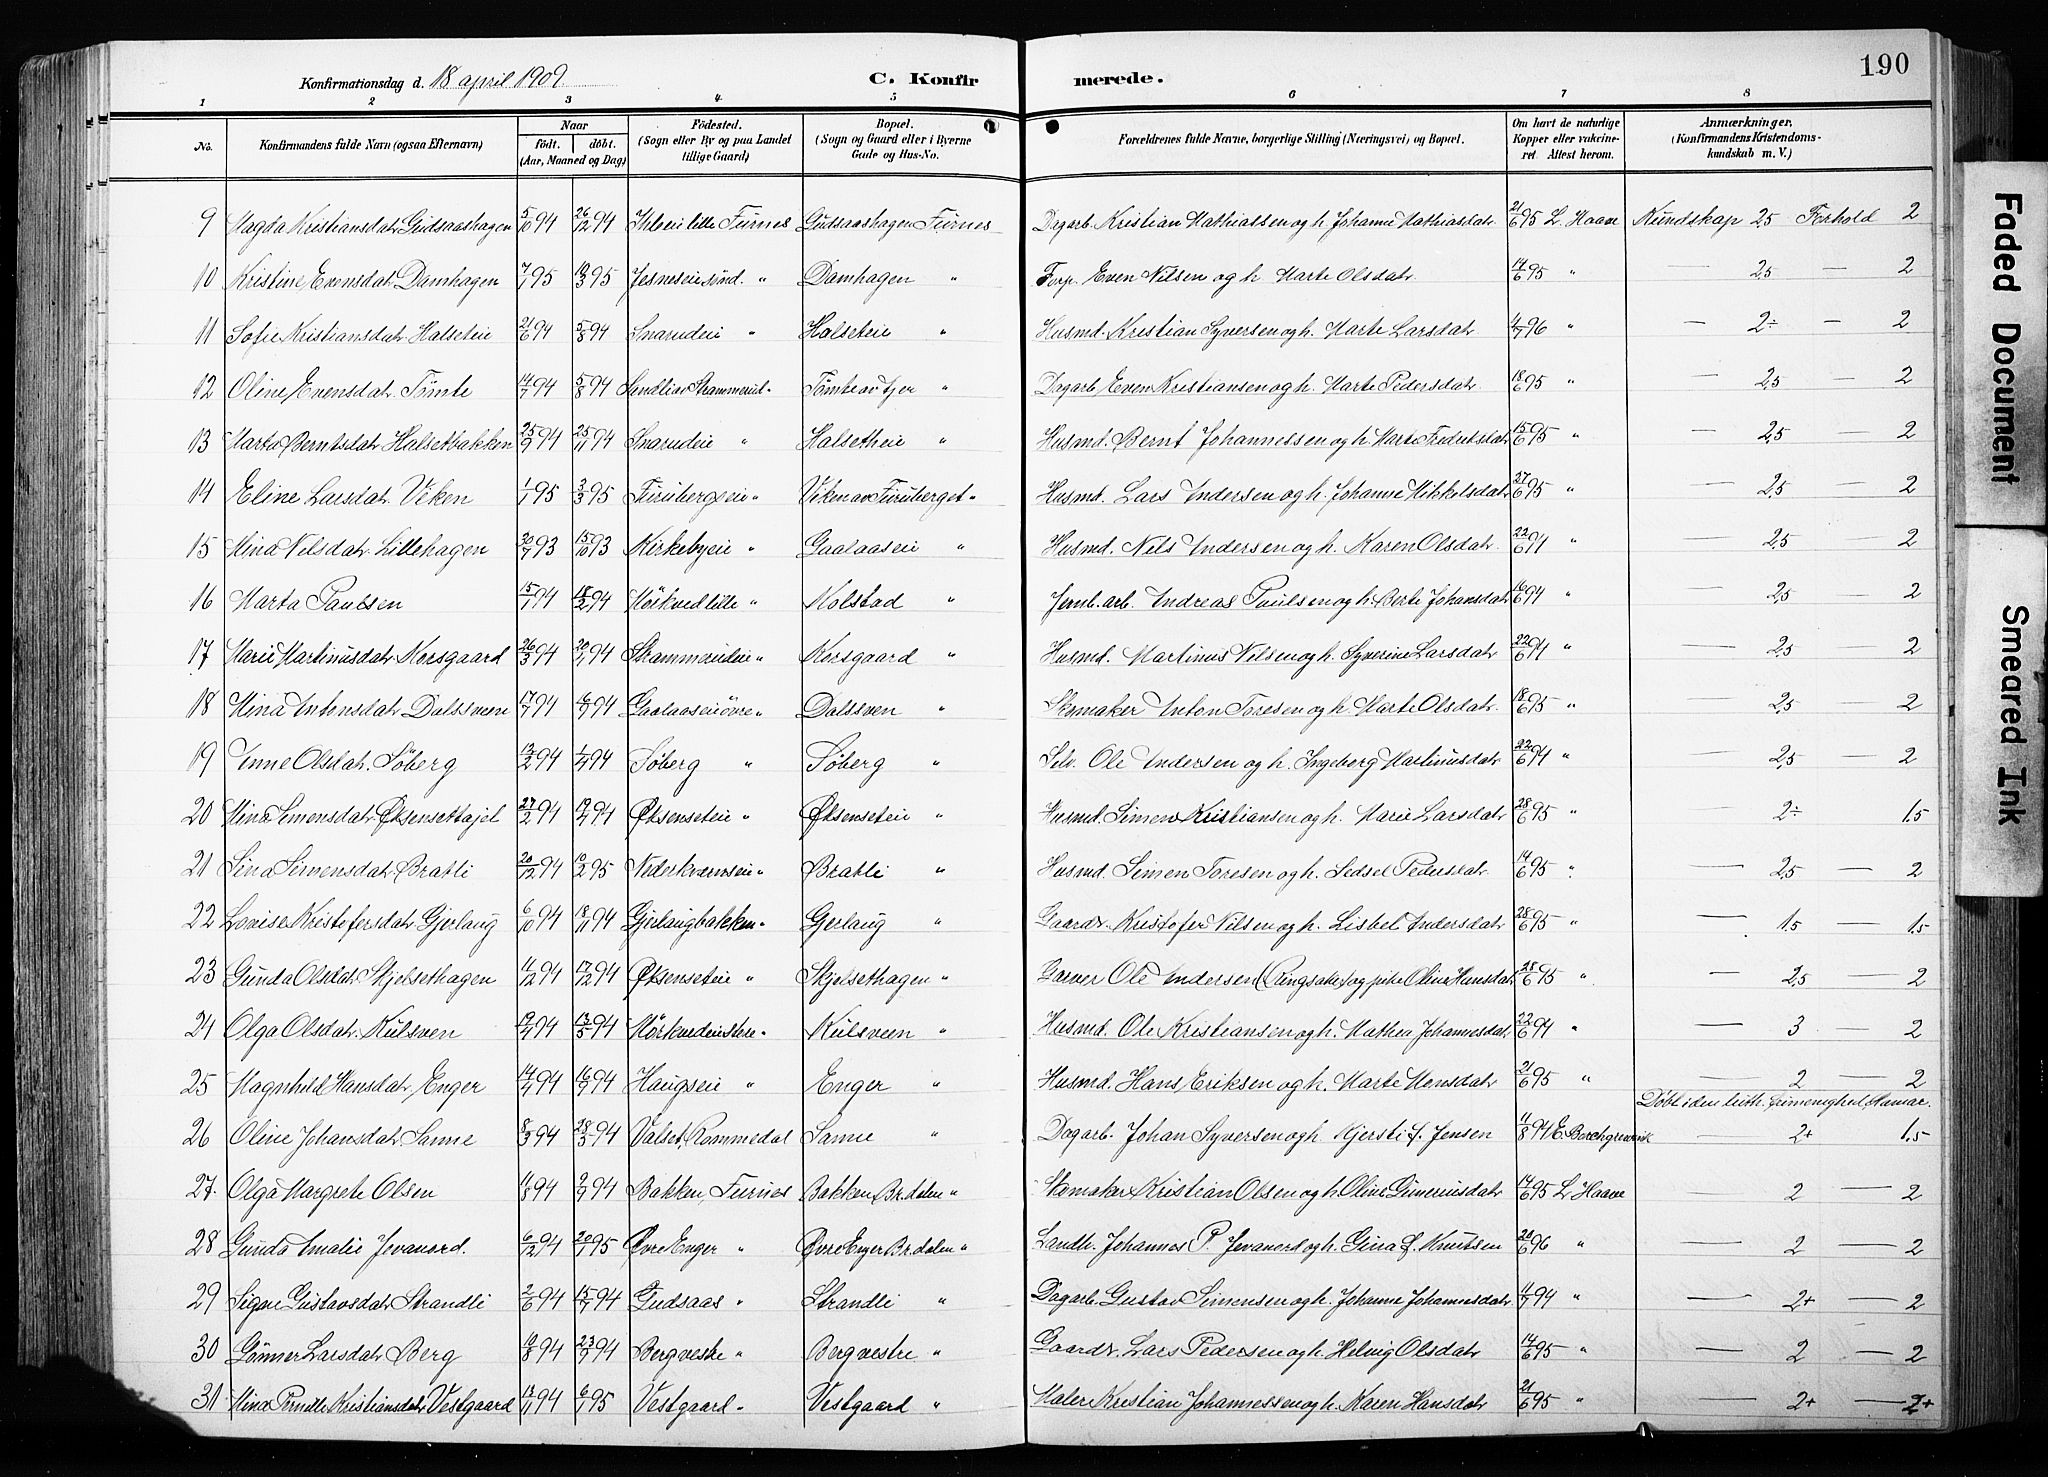 190
Konfirmationsdag d. 18 april 1909. C. Konfirmerede.
1 2 3 4 5 6 7 8
No. Konfirmandens fulde Navn (ogsaa Efternavn) Naar født. døbt. (Aar, Maaned og Dag) Födested. (Sogn eller By og paa Landet tillige Gaard) Bopæl. (Sogn og Gaard eller i Byerne Gade og Hus-No. Forældrenes fulde Navne, borgerlige Stilling (Næringsvei) og Bopæl. Om havt de naturlige Kopper eller vakcineret. Attest herom. Anmærkninger. (Konfirmandens Kristendomskundskab m. V.)
9 Magda Kristiansdatr Gudsaashagen 5/10 94 26/12 94 lille Furnes Gudsaashagen Furnes Dagarb. Kristian Mathiassen og h. Johanne Mathiasdatr 21/6 95 L. Haave Kundskap 2,5 Forhold 2
10 Kristine Evensdatr Damhagen 7/1 95 10/3 95 Jesneseie sönd. " Damhagen " Forp. Even Nilsen og h. Marte Olsdatr. 14/6 95 " — 2,5 — 2
11 Sofie Kristiansdatr Halseteie 21/6 94 5/8 94 Snarudeie " Halseteie " Husmd. Kristian Syversen og h. Marte Larsdatr 4/7 96 " — 2÷ — 2
12 Oline Evensdatr. Tömte 14/7 94 5/8 94 Sandli av Strammerud " Tömte av Gjer " Dagarb. Even Kristiansen og h. Marte Pedersdatr 18/6 95 " — 2,5 — 2
13 Marta Berntsdatr Halsetbakken 25/9 94 25/11 94 Snarudeie " Halsetheie " Husmd. Bernt Johannessen og h. Marte Fredriksdatr 15/6 95 " — 2,5 — 2
14 Eline Larsdatr Viken 1/1 95 3/3 95 Furubergseie " Viken av Furuberget " Husmd. Lars Andersen og h. Johanne Mikkelsdatr 27/6 95 " — 2,5 — 2
15 Mina Nilsdatr. Lillehagen 20/7 93 15/10 93 Kirkebyeie " Gaalaaseie " Husmd. Nils Andersen og h. Karen Olsdatr. 22/6 94 " — 2,5 — 2
16 Marta Paulsen 15/1 94 18/2 94 Mörkved lille " Kolstad " Jernb. arb. Andreas Paulsen og h. Berte Johansdatr 16/6 94 " — 2,5 — 2
17 Marie Martinusdatr. Korsgaard 26/3 94 Strammerudeie " Korsgaard " Husmd. Martinus Nilsen og h. Syverine Larsdatr 22/6 94 " — 2,5 2
18 Mina Antonsdatr Dalssveen 17/7 94 Gaalaaseie övre " Dalssven " Skomaker Anton Toresen og h. Marte Olsdatr. 18/6 95 " — 2,5 — 2
19 Anne Olsdatr. Söberg 13/2 94 1/4 94 Söberg " Söberg " Selv. Ole Andersen og h. Ingeborg Martinusdatr 22/6 94 " — 2,5 — 2
20 Mina Simensdatr Øksensethajel 27/2 94 Øksenseteie " Øksenseteie " Husmd. Simen Kristiansen og h. Marie Larsdatr 28/6 95 " — 2÷ 1.5
21 Sina Simensdatr Bratli 20/12 94 10/2 95 Nederkvernseie " Bratli " Husmd. Simen Toresen og h. Sedsel Pedersdatr. 14/6 95 " — 2,5 — 2
22 Lovise Kristofersdatr Gjerlaug 6/10 94 18/11 94 Gjerlaugbakken " Gjerlaug " Gaardr. Kristofer Nilsen og h. Lisbet Andersdatr 28/6 95 " — 1,5 — 1,5
23 Gunda Olsdatr Skjelsethagen 4/12 94 17/12 94 Øksenseteie " Skjelsethagen " Garver Ole Andersen (Ringsaker) og pike Oline Hansdatr 28/6 95 " — 2,5 — 2
24 Olga Olsdatr. Kulsven 19/4 94 13/5 94 Mörkved " Kulsveen " Husmd. Ole Kristiansen og h. Mathea Johannesdatr. 22/6 94 " — 3 — 2
25 Magnhild Hansdatr Enger 14/4 94 Haugseie " Enger " Husmd. Hans Eriksen og h. Marte Monsdatr 21/6 95 " — 2 — 2
Döbt i den luth. frimenighed Hamar.
26 Oline Johansdatr. Sanne 8/3 94 28/5 94 Valset, Rommedal Sanne " Dagarb. Johan Syversen og h. Kjersti f. Jensen 11/8 94 E. Borchgrevink — 2+ 1,5
27. Olga Margrete Olsen 4/8 94 2/9 94 Bakken, Furnes Bakken Br.dalen " Skomaker Kristian Olsen og h. Oline Guneriusdatr 14/6 95 L. Haave — 2 — 2
28 Gunda Amalie Jevanord. 6/12 94 20/1 95 Øvre Enger " Øvre Enger Br.dalen " Landh. Johannes P. Jevanord og h. Gina f. Knutsen 26/6 96 " — 2 — 2
29 Signe Gustavsdatr Strandli 2/6 94 15/7 94 Gudsaas " Strandli " Dagarb. Gustav Simensen og h. Johanne Johannesdatr 11/7 94 " — 2+ — 2
30 Gunner Larsdatr Berg 10/8 94 23/9 94 Berg vestre " Berg vestre " Gaardr. Lars Pedersen og h. Helvig Olsdatr 14/6 95 " — 2 — 2
31 Mina Pernille Kristiansdatr Vestgaard 13/11 94 6/1 95 Vestgaard " Vestgaard " Maler Kristian Johannessen og h. Karen Hansdatr 21/6 95 " — 2+ — 2+
Faded Document
Smeared Ink